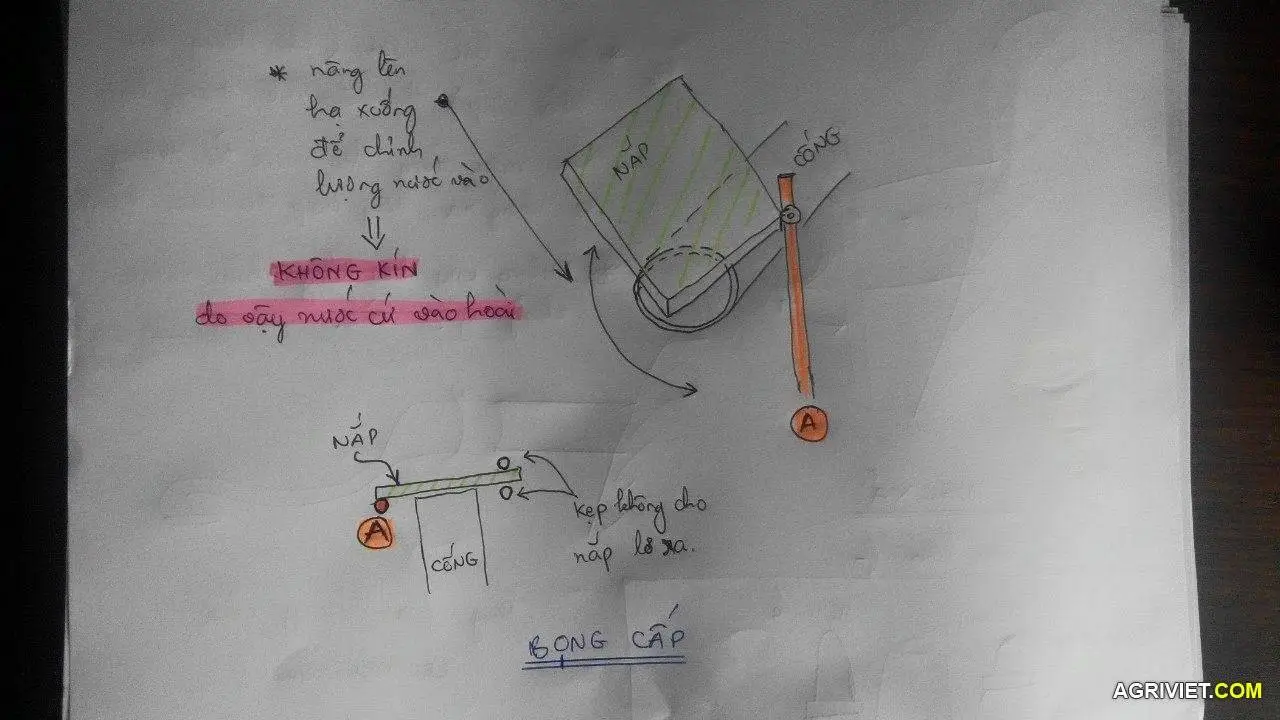 * nâng lên
hạ xuống
để chỉnh
lượng nước vào
KHÔNG KÍN
do vậy nước cứ vào hoài
NẮP
CỐNG
A
NẮP
A
CỐNG
kẹp không cho
nắp lơ ra.
BỌNG CẤP
AGRIVIET.COM